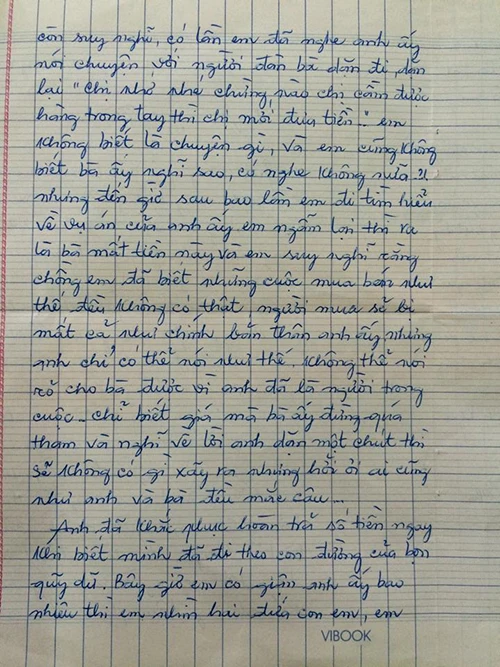 còn suy nghĩ, có lần em đã nghe anh ấy
nói chuyện với người đàn bà dặn đi dặn
lại "chị nhớ nhé chừng nào chị cầm được
hàng trong tay thì chị mới đưa tiền..." em
không biết là chuyện gì, và em cũng không
biết bà ấy nghĩ sao, có nghe không nữa ?!
nhưng đến giờ sau bao lần em đi tìm hiểu
về vụ án của anh ấy em ngẫm lại thì ra
là bà mất tiền này và em suy nghĩ rằng
chồng em đã biết những cuộc mua bán như
thế đều không có thật, người mua sẽ bị
mất cả như chính bản thân anh ấy nhưng
anh chỉ có thể nói như thế. Không thể nói
rõ cho bà được vì anh đã là người trong
cuộc... chỉ biết giá mà bà ấy đừng quá
tham và nghĩ về lời anh dặn một chút thì
sẽ không có gì xảy ra nhưng hỡi ơi ai cũng
như anh và bà đều mắc câu...
Anh đã khắc phục hoàn trả số tiền ngay
khi biết mình đã đi theo con đường của bọn
quỹ dữ. Bây giờ em có giận anh ấy bao
nhiêu thì em nhìn hai đứa con em, em
VIBOOK